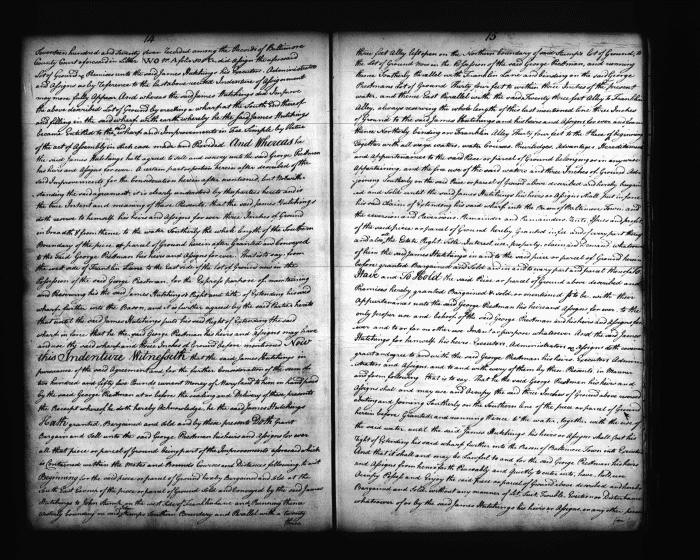 14
Seventeen hundred and seventy four Recorded among the Records of Baltimore
County Court aforesaid in Liber did assign the aforesaid
Lot of Ground & Premises unto the said James Hutchings his Executors Administrators
and Assigns as by reference to the last above recited Indenture of Assignment
may more fully appear. And whereas the said James Hutchings did Improve
the above described Lot of Ground by erecting a wharf at the South End thereof
and filling in the said wharf with earth whereby he the said James Hutchings
became Entitled to the wharf and Improvements in Fee Simple by Virtue
of the act of Assembly in such case made and Provided And Whereas he
the said James Hutchings hath agreed to sell and convey unto the said George Prestman
his heirs and Assigns for ever a certain part or portion herein after described of the
said Improvements for the consideration herein after mentioned, but Notwith-
standing the said agreement, it is clearly understood by the parties hereto and is
the true Intent and meaning of these Presents that the said James Hutchings
doth reserve to himself his heirs and Assigns for ever three Inches of Ground
in breadth & from thence to the water Southerly the whole length of the Southern
Boundary of the piece or parcel of Ground herein after Granted and conveyed
to the said George Prestman his heirs and Assigns for ever. That is to say, from
the west side of Franklin Lane to the East side of the Lot of Ground now in the
Possession of the said George Prestman, for the Express purpose of maintaining
and Reserving his the said James Hutchings Right and title of Extending his said
wharf further into the Bason, and it is further agreed by the said Parties hereto
that until the said James Hutchings or his said Right of Extending the said
wharf in lieu that he the said George Prestman his heirs and Assigns may have
and use the said wharf and three Inches of Ground before mentioned Now
this Indenture Witnesseth that the said James Hutchings in
pursuance of the said Agreement and for the further Consideration of the sum of
two hundred and fifty five Pounds current Money of Maryland to him in hand paid
by the said George Prestman at or before the ensealing and Delivery of these presents
the Receipt whereof he doth hereby Acknowledge, he the said James Hutchings
Hath granted, Bargained and sold and by these presents Doth Grant
Bargain and Sell unto the said George Prestman his heirs and Assigns for ever
all that piece or parcel of Ground being part of the Improvements aforesaid which
is Contained within the Metes and Bounds Courses and Distances following to wit
Beginning for the said piece or parcel of Ground hereby Bargained and Sold at the
South East Corner of the piece or parcel of Ground sold and conveyed by the said James
Hutchings to John Stump, on the west side of Franklin Lane and Running thence
westerly bounding on said Stumps Southern Boundary and Parallel with a twenty
three
15
three feet Alley left open on the Northern boundary of said Stumps Lot of Ground, to
the Lot of Ground Now in the Possession of the said George Prestman, and running
thence Southerly Parallel with Franklin Lane and binding on the said George
Prestmans Lot of Ground Thirty four feet to within three Inches of the present
water, and thence East Parallel with the said Twenty three feet Alley to Franklin
Alley, always reserving the whole length of this last mentioned line three Inches
of Ground to the said James Hutchings and his heirs and Assigns for ever and from
thence Northerly bounding on Franklin Alley Thirty four feet to the Place of beginning
Together with all ways waters, water Courses, Priviledges, Advantages Hereditaments
and Appurtenances to the said Piece or parcel of Ground belonging or in any wise
Appertaining, and the free use of the said waters and three Inches of Ground Ad-
joining Southerly on the said Piece or parcel of Ground above described and hereby bargained
and Sold until the said James Hutchings his heirs or Assigns shall, Just in force
his said claim of Extending his said wharf into the Bason of Baltimore Town, and
the reversion and Reversions, Remainder and Remainders Rents, Issues and profits
of the said piece or parcel of Ground hereby granted in fee and every part thereof
and also the Estate Right, title Interest, use, property, claim and demand whatsoever
of him the said James Hutchings in and to the said piece or parcel of Ground herein
before granted Bargained and Sold and in and to every part and parcel thereof To
Have and To Hold the said Piece or parcel of Ground above described and
Premises hereby granted Bargained & sold or mentioned to be with their
Appurtenances unto the said George Prestman his heirs and Assigns for ever to the
only proper use and behoof of the said George Prestman and his heirs and Assigns for
ever and to or for no other use Intent or purpose whatsoever. And the said James
Hutchings for himself his heirs Executors, Administrators or Assigns doth covenant
grant and agree to and with the said George Prestman his heirs Executors Admini-
strators and Assigns and to and with every of them by these Presents in Manner
and form following that is to say. That he the said George Prestman his heirs and
Assigns shall and may use and occupy the said three Inches of Ground above mentioned
lieing and joining Southerly on the Southern line of the piece or parcel of Ground
herein before Granted and running thence to the water, together with the use of
the said water until the said James Hutchings his heirs or Assigns shall put his
right of Extending his said wharf further into the Bason of Baltimore Town into Execution
And that it shall and may be Lawful to and for the said George Prestman his heirs
and Assigns from henceforth Peaceably and Quietly to enter into, have hold use
Occupy Possess and Enjoy the said piece or parcel of Ground above described and hereby
Bargained and Sold, without any manner of Let, Suit, Trouble, Eviction or Disturbance
whatsoever of or by the said James Hutchings his heirs or Assigns, or any other person